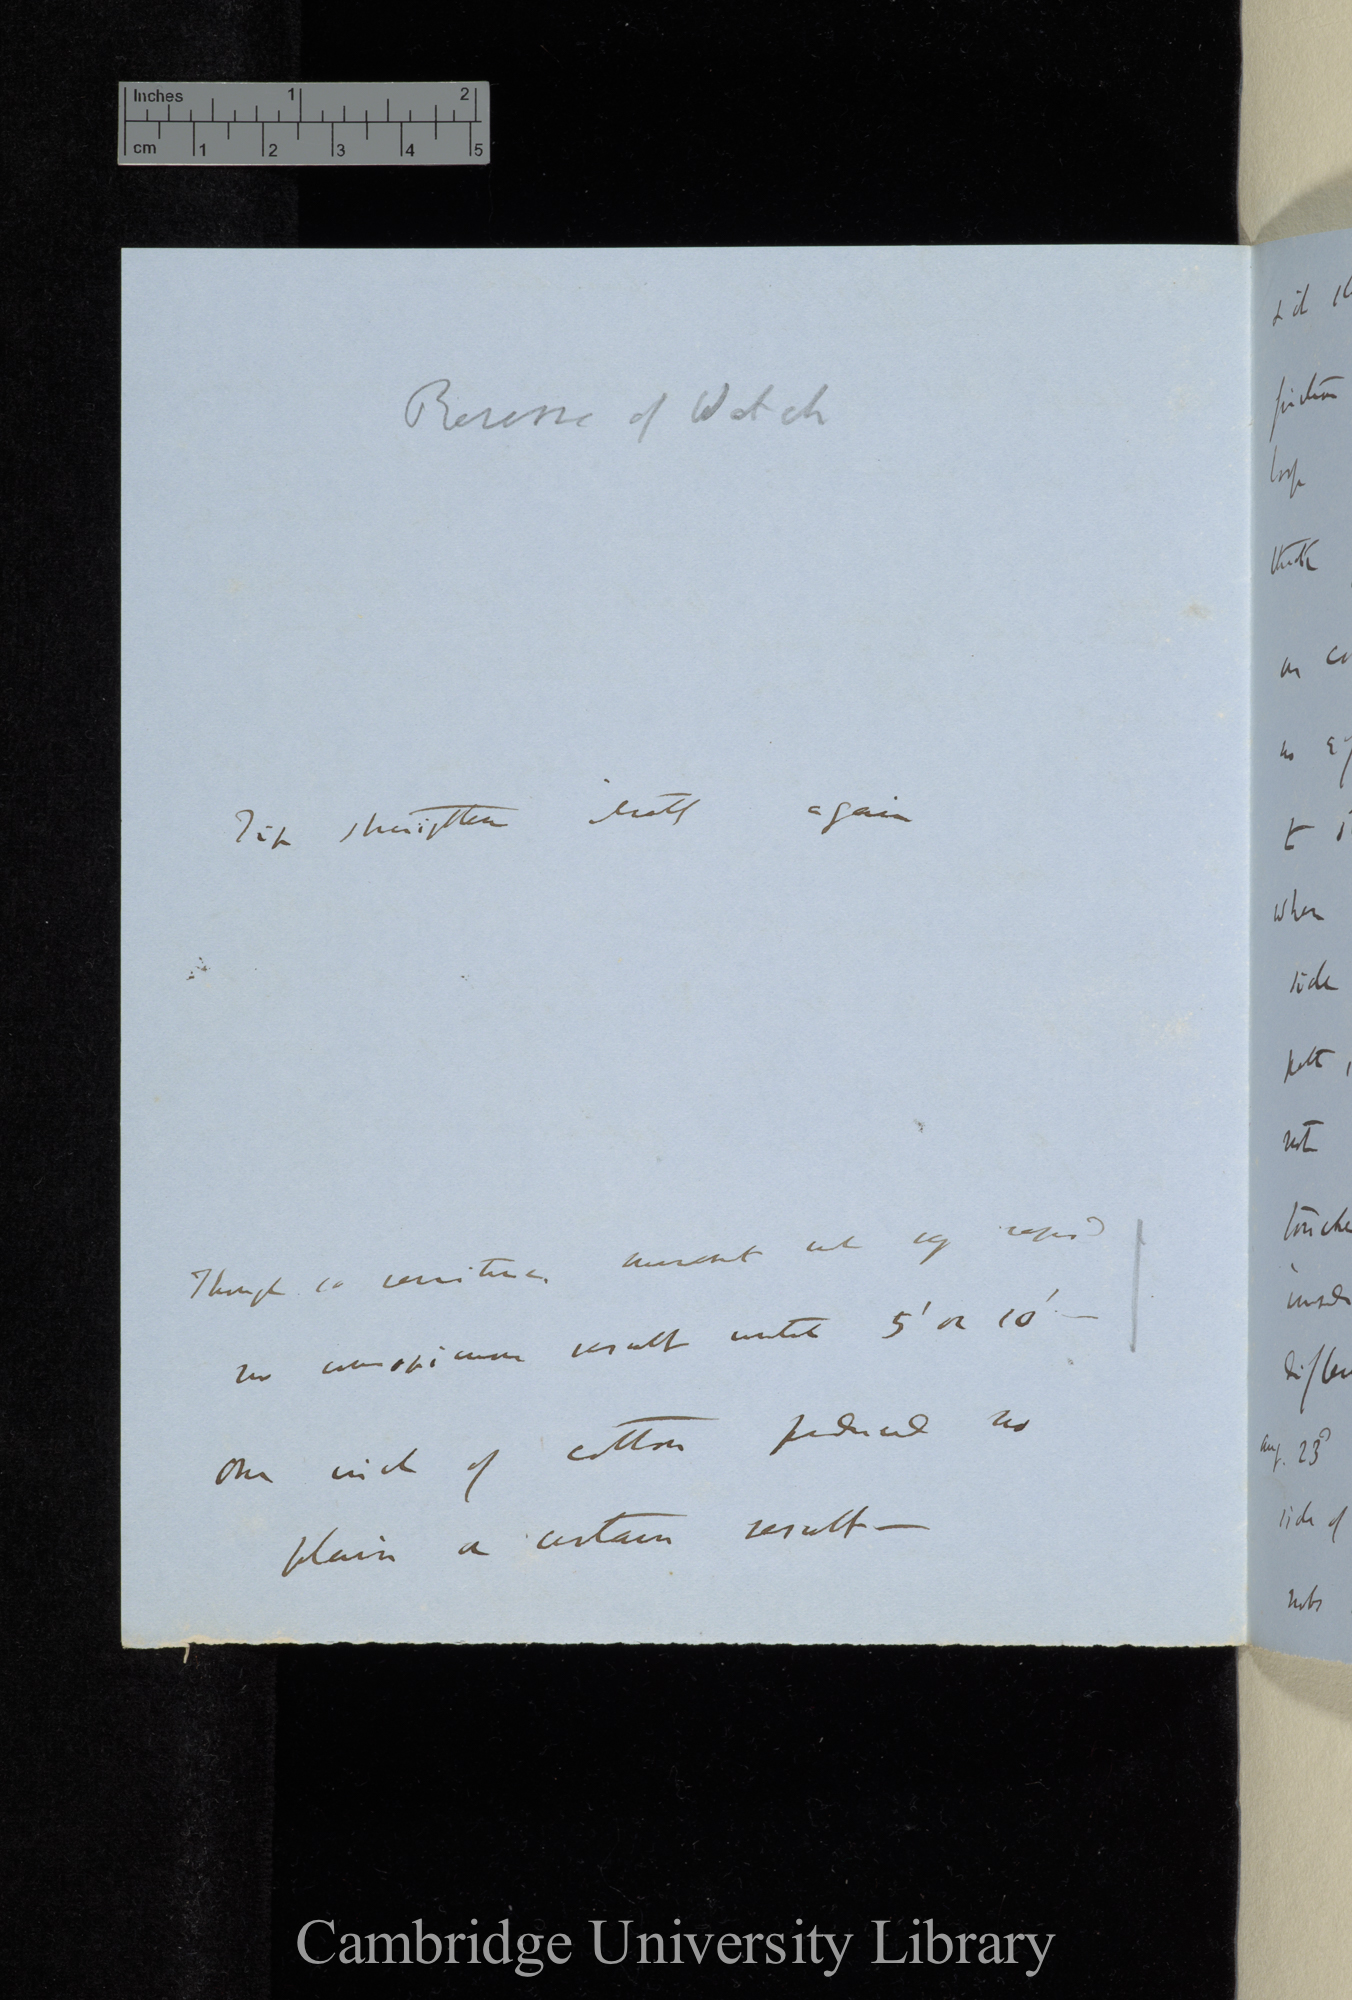 Inches 1 2
cm 1 2 3 4 5
Reverse of Watch
Tip straighten itself again
Though so sensitive, movement not very rapid
no conspicuous result until 5' or 10' —
One inch of cotton produced no
plain or certain result —
friction
loop
think
no
to
when
side
not
touche
Aug. 23d
side of
Cambridge University Library